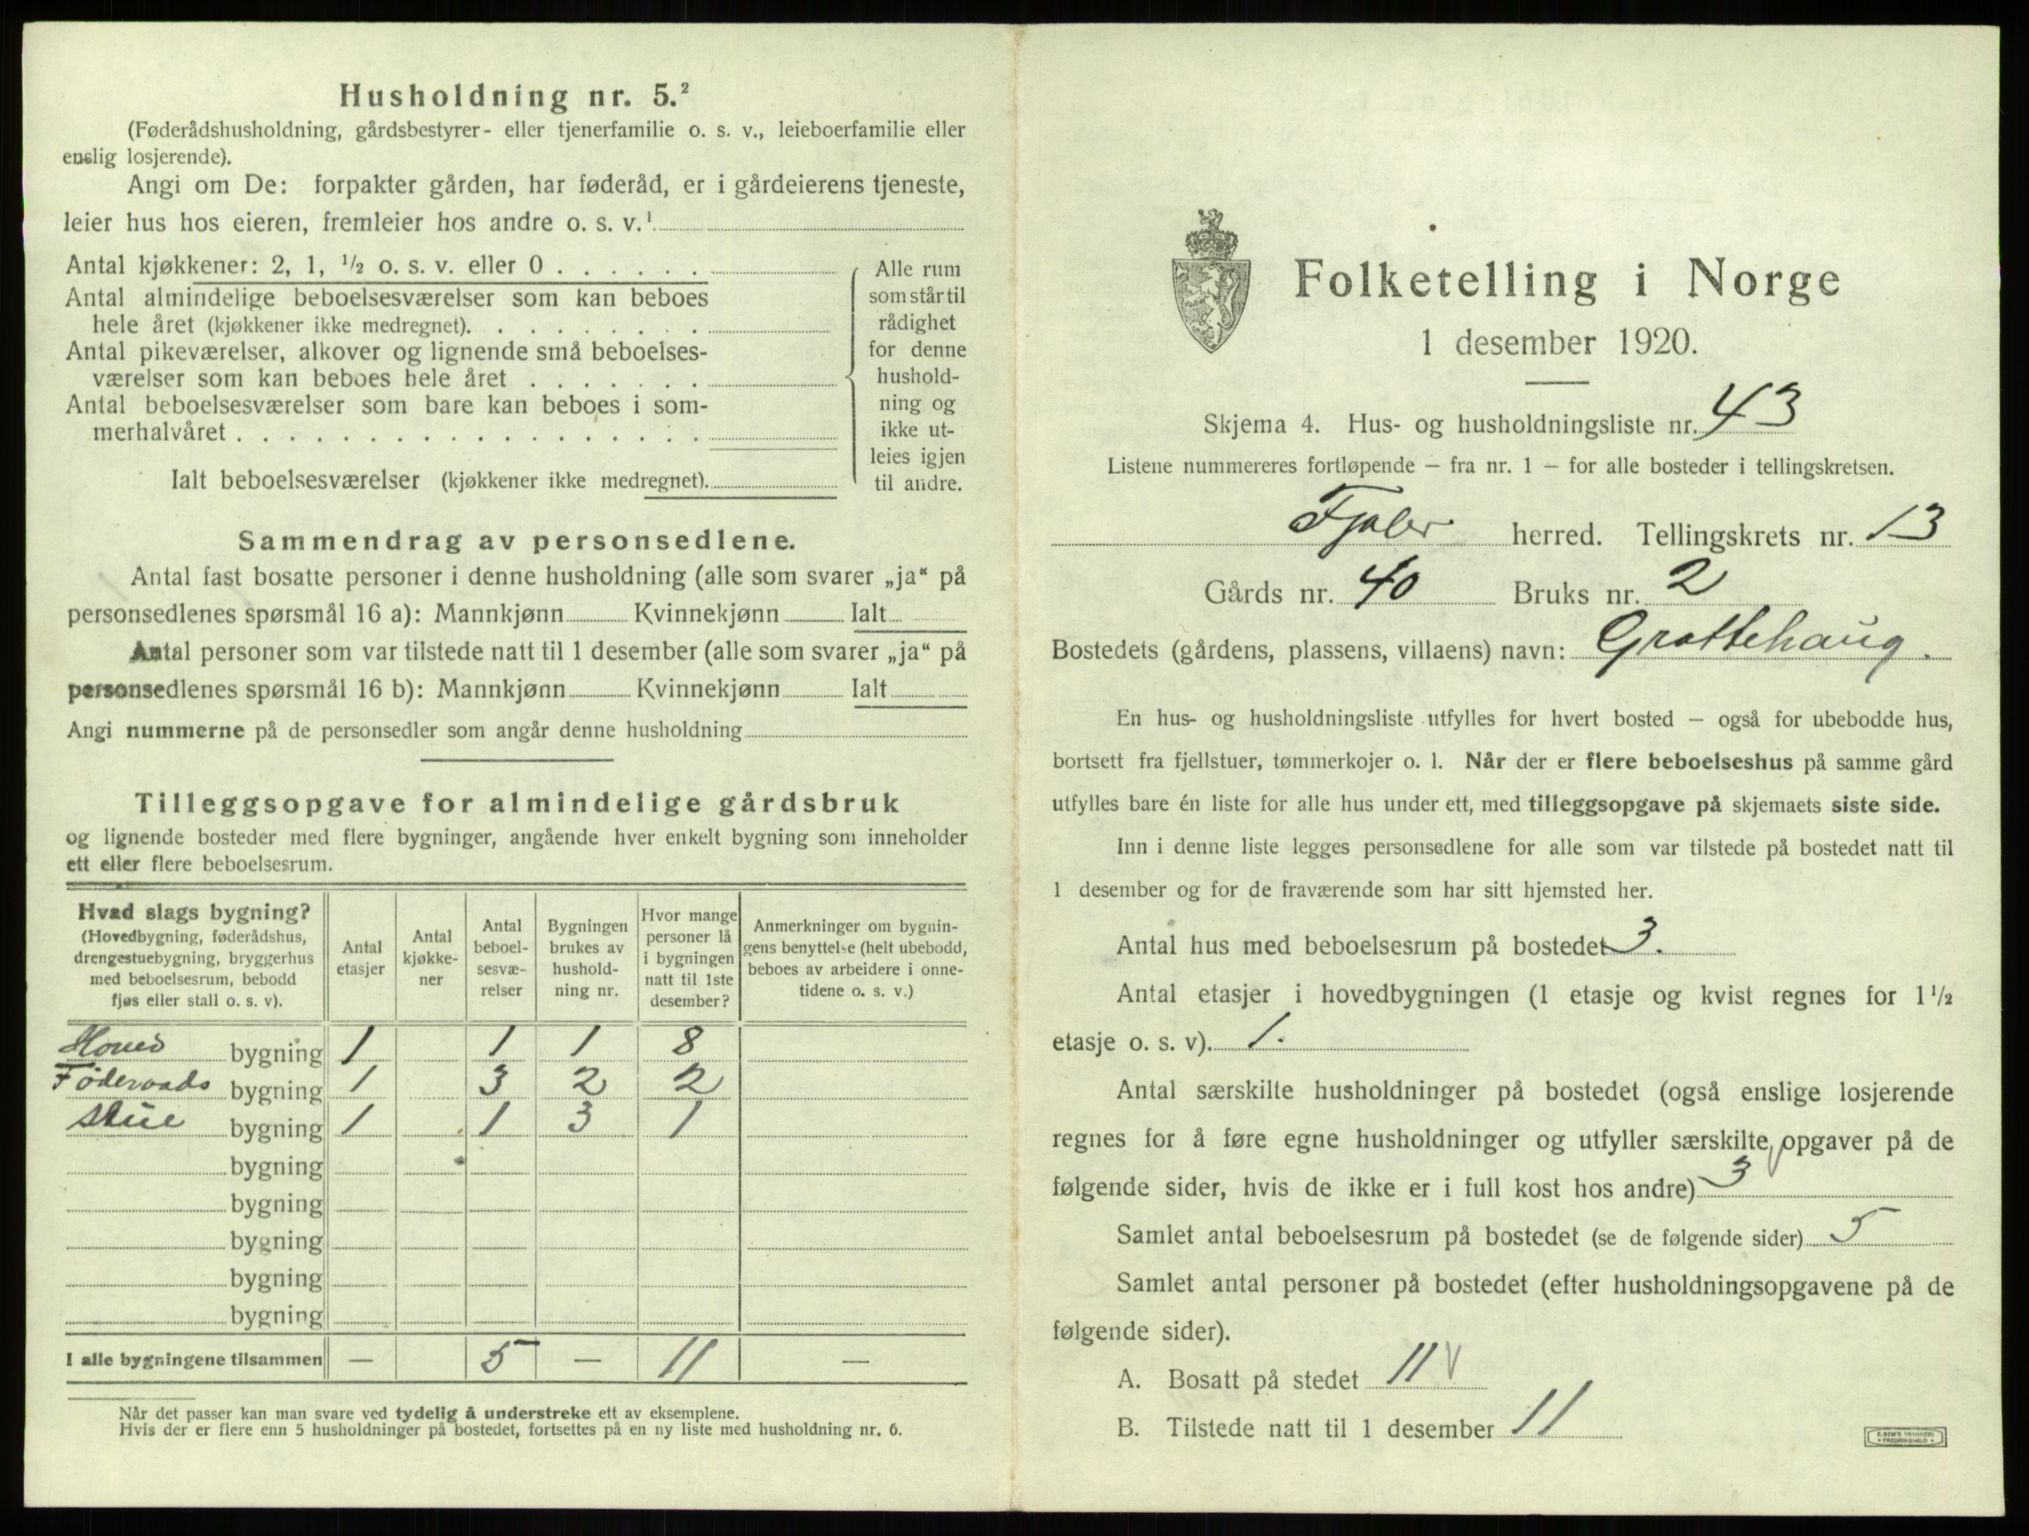 Husholdning nr. 5.²
(Føderådshusholdning, gårdsbestyrer- eller tjenerfamilie o. s. v., leieboerfamilie eller
enslig losjerende).
Angi om De: forpakter gården, har føderåd, er i gårdeierens tjeneste,
leier hus hos eieren, fremleier hos andre o. s. v.¹
Antal kjøkkener: 2, 1, ½ o. s. v. eller 0 . . . . . .
Antal almindelige beboelsesværelser som kan beboes
hele året (kjøkkener ikke medregnet). . . . . . . . .
Antal pikeværelser, alkover og lignende små beboelses-
værelser som kan beboes hele året . . . . . . .
Antal beboelsesværelser som bare kan beboes i som-
merhalvåret . . . . . . . . . . . . . . . . . .
Ialt beboelsesværelser (kjøkkener ikke medregnet).
Alle rum
som står til
rådighet
for denne
hushold-
ning og
ikke ut-
leies igjen
til andre.
Sammendrag av personsedlene.
Antal fast bosatte personer i denne husholdning (alle som svarer „ja“ på
personsedlenes spørsmål 16 a): Mannkjønn Kvinnekjønn Ialt
Antal personer som var tilstede natt til 1 desember (alle som svarer „ja“ på
personsedlenes spørsmål 16 b): Mannkjønn Kvinnekjønn Ialt
Angi nummerne på de personsedler som angår denne husholdning
Tilleggsopgave for almindelige gårdsbruk
og lignende bosteder med flere bygninger, angående hver enkelt bygning som inneholder
ett eller flere beboelsesrum.
Hvad slags bygning?
(Hovedbygning, føderådshus,
drengestuebygning, bryggerhus
med beboelsesrum, bebodd
fjøs eller stall o. s. v).
Antal
etasjer
Antal
kjøkke-
ner
Antal
beboel-
sesvæ-
relser
Bygningen
brukes av
hushold-
ning nr.
Hvor mange
personer lå
i bygningen
natt til 1ste
desember?
Anmerkninger om bygnin-
gens benyttelse (helt ubebodd,
beboes av arbeidere i onne-
tidene o. s. v.)
Hoved bygning 1 1 1 8
Føderaads bygning 1 3 2 2
stue bygning 1 1 3 1
bygning
bygning
bygning
bygning
bygning
I alle bygningene tilsammen — 5 — 11 —
Når det passer kan man svare ved tydelig å understreke ett av eksemplene.
Hvis der er flere enn 5 husholdninger på bostedet, fortsettes på en ny liste med husholdning nr. 6.
Folketelling i Norge
1 desember 1920.
Skjema 4. Hus- og husholdningsliste nr. 43
Listene nummereres fortløpende – fra nr. 1 – for alle bosteder i tellingskretsen.
Fjaler herred. Tellingskrets nr. 13
Gårds nr. 40 Bruks nr. 2
Bostedets (gårdens, plassens, villaens) navn: Grottehaug.
En hus- og husholdningsliste utfylles for hvert bosted – også for ubebodde hus,
bortsett fra fjellstuer, tømmerkojer o. l. Når der er flere beboelseshus på samme gård
utfylles bare én liste for alle hus under ett, med tilleggsopgave på skjemaets siste side.
Inn i denne liste legges personsedlene for alle som var tilstede på bostedet natt til
1 desember og for de fraværende som har sitt hjemsted her.
Antal hus med beboelsesrum på bostedet 3.
Antal etasjer i hovedbygningen (1 etasje og kvist regnes for 1½
etasje o. s. v). 1.
Antal særskilte husholdninger på bostedet (også enslige losjerende
regnes for å føre egne husholdninger og utfyller særskilte opgaver på de
følgende sider, hvis de ikke er i full kost hos andre) 3
Samlet antal beboelsesrum på bostedet (se de følgende sider) 5
Samlet antal personer på bostedet (efter husholdningsopgavene på de
følgende sider).
A. Bosatt på stedet 11 √
B. Tilstede natt til 1 desember 11